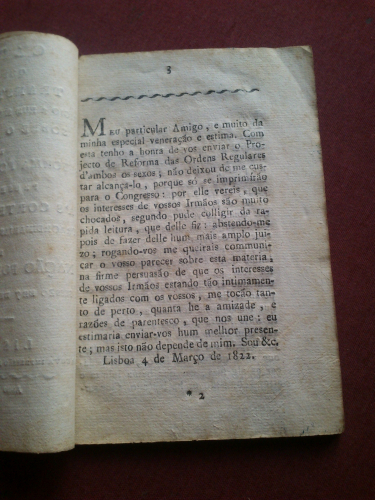 3
MEU particular Amigo, e muito da
minha especial veneração e estima. Com
esta tenho a honra de vos enviar o Pro-
jecto de Reforma das Ordens Regulares
d'ambos os sexos; não deixou de me cus-
tar alcança-lo, porque só se imprimirão
para o Congresso: por elle vereis, que
os interesses de vossos Irmãos são muito
chocados, segundo pude colligir da ra-
pida leitura, que delle fiz: abstendo-me
pois de fazer delle hum mais amplo jui-
zo; rogando-vos me queirais communi-
car o vosso parecer sobre esta materia,
na firme persuasão de que os interesses
de vossos Irmãos estando tão intimamente
ligados com os vossos, me tocão tan-
to de perto, quanta he a amizade, e
razões de parentesco, que nos une: eu
estimaria enviar-vos hum melhor presen-
te; mas isto não depende de mim. Sou &c.
Lisboa 4 de Março de 1822.
* 2